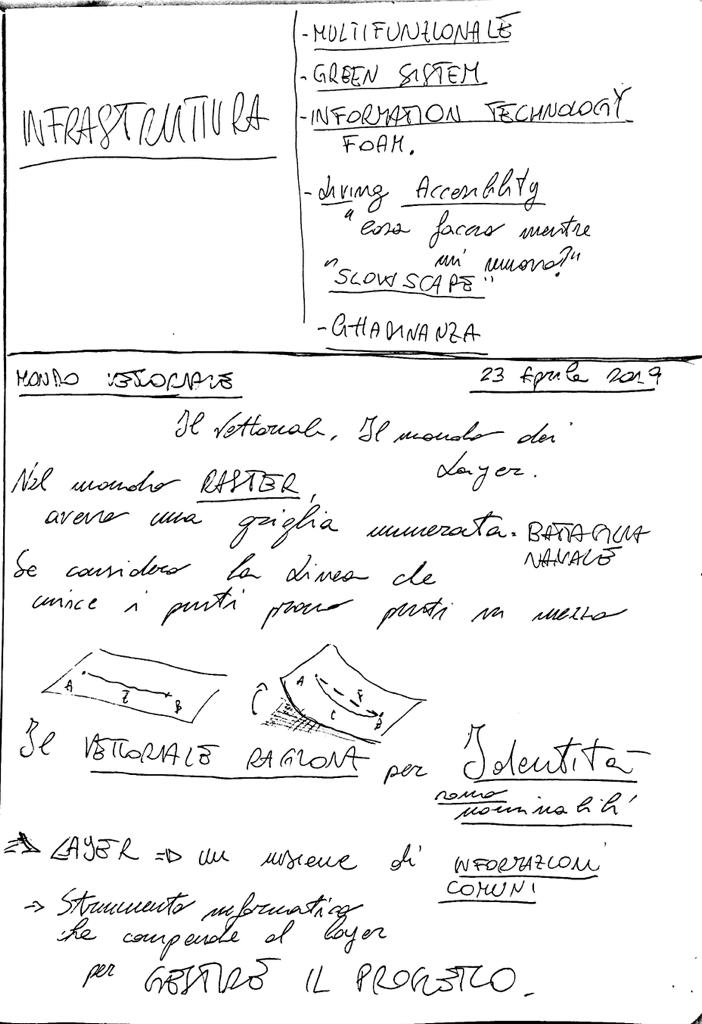 INFRASTRUTTURA
- MULTIFUNZIONALE
- GREEN SISTEM
- INFORMATION TECHNOLOGY
FOAM.
- Living Accessibility
"Cosa faccio mentre
mi muovo?"
"SLOWSCAPE"
- CITTADINANZA
MONDO VETTORIALE
23 Aprile 2019
Il Vettoriale, Il mondo dei
Layer.
Nel mondo RASTER,
avevo una griglia numerata. BATTAGLIA
NAVALE
Se considero la Linea che
unisce i punti provo punti in mezzo
A B
A B
Il VETTORIALE RAGIONA per Identità
sono
nominabili
⇒ LAYER ⇒ un insieme di INFORMAZIONI
COMUNI
→ Strumento informatico
che comprende il layer
per GESTIRE IL PROGETTO.